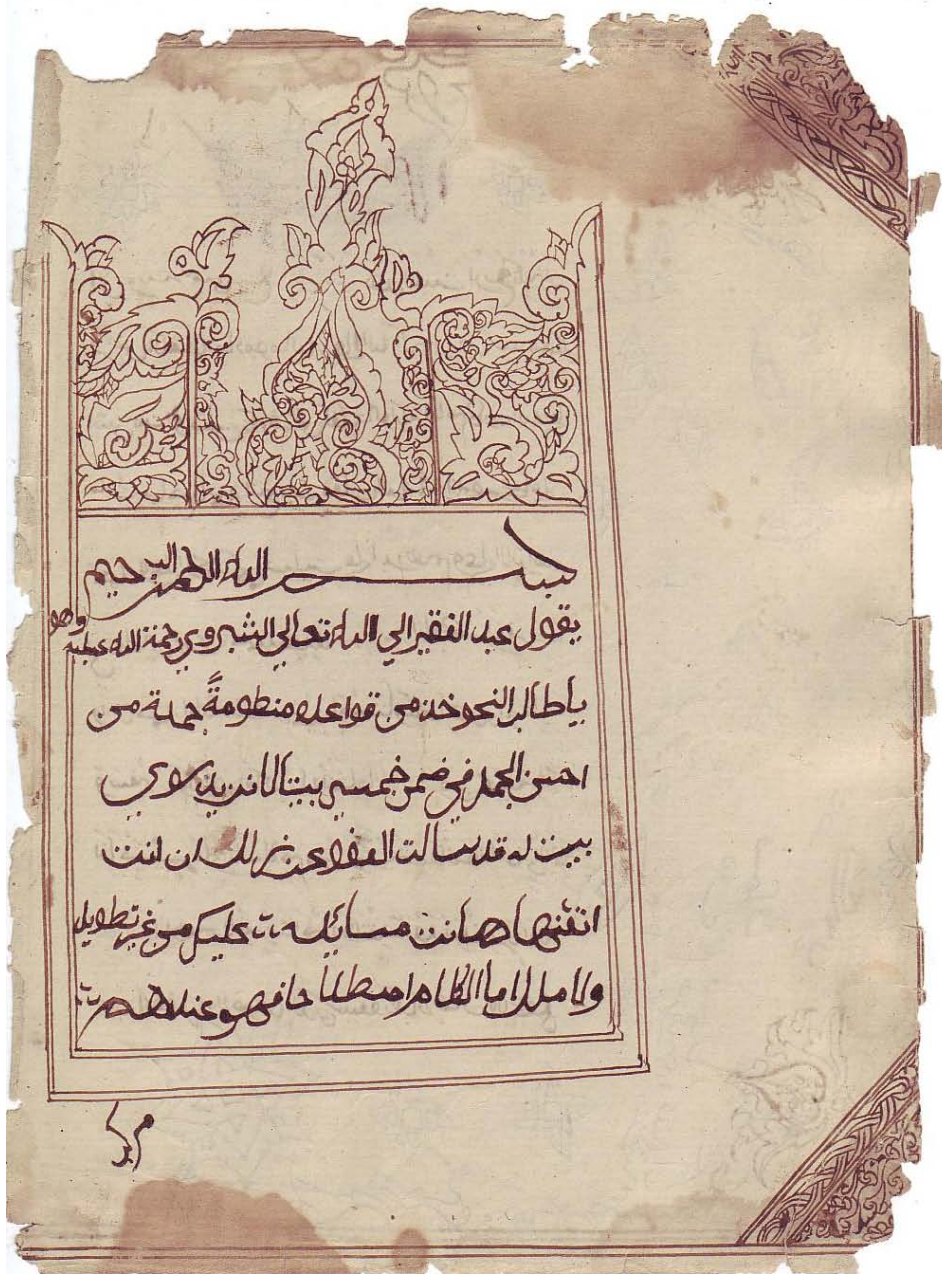 بسم الله الرحمن الرحيم
يقول عبد الفقير الي الله تعالي الشبروي رحمة الله عليه وهو
ياطالب النحو خذ من قواعده منظومةً جملة من
احسن الجمل في ضمن خمسين بيتا لا تزيد سوي
بيت له قد سالت العفو عن زلل ان انت
اتقنتها هانت مسايله ت عليك من غير تطويل
ولا ملل اما الكلام اصطلاحا فهو عندهم ت
مركب